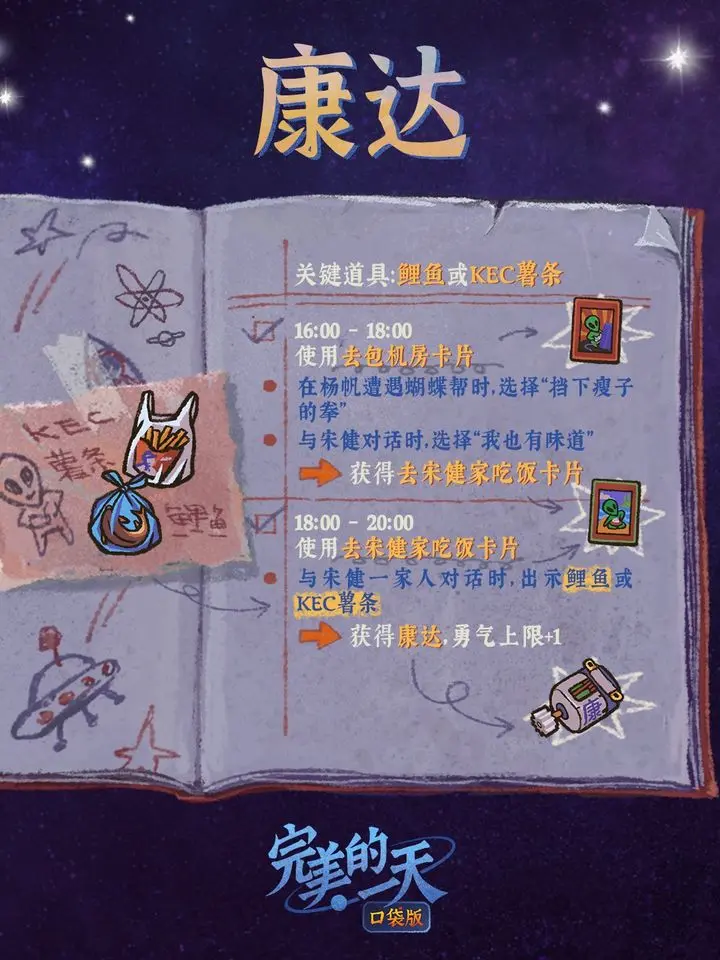 康达
关键道具:鲤鱼或KEC薯条
16:00 - 18:00
使用去包机房卡片
在杨帆遭遇蝴蝶帮时,选择“挡下瘦子
的拳”
与宋健对话时,选择“我也有味道”
获得去宋健家吃饭卡片
18:00 - 20:00
使用去宋健家吃饭卡片
与宋健一家人对话时,出示鲤鱼或
KEC薯条
获得康达,勇气上限+1
KEC
薯条
鲤鱼
康
完美的一天
口袋版